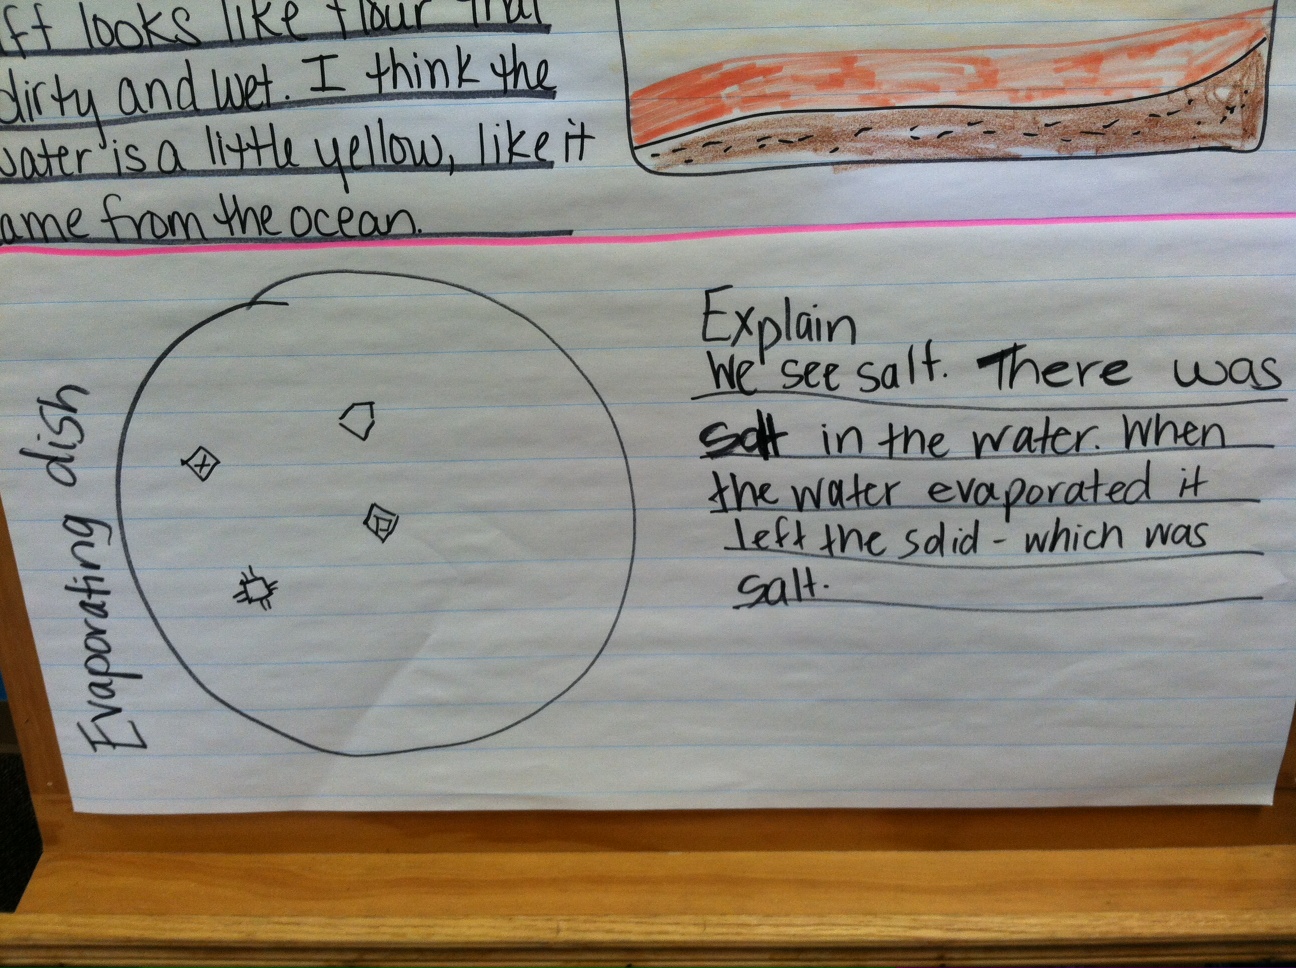 looks like flour that
dirty and wet. I think the
water is a little yellow, like it
ame from the ocean.
Evaporating dish
Explain
We see salt. There was
salt in the water. When
the water evaporated it
left the solid - which was
salt.